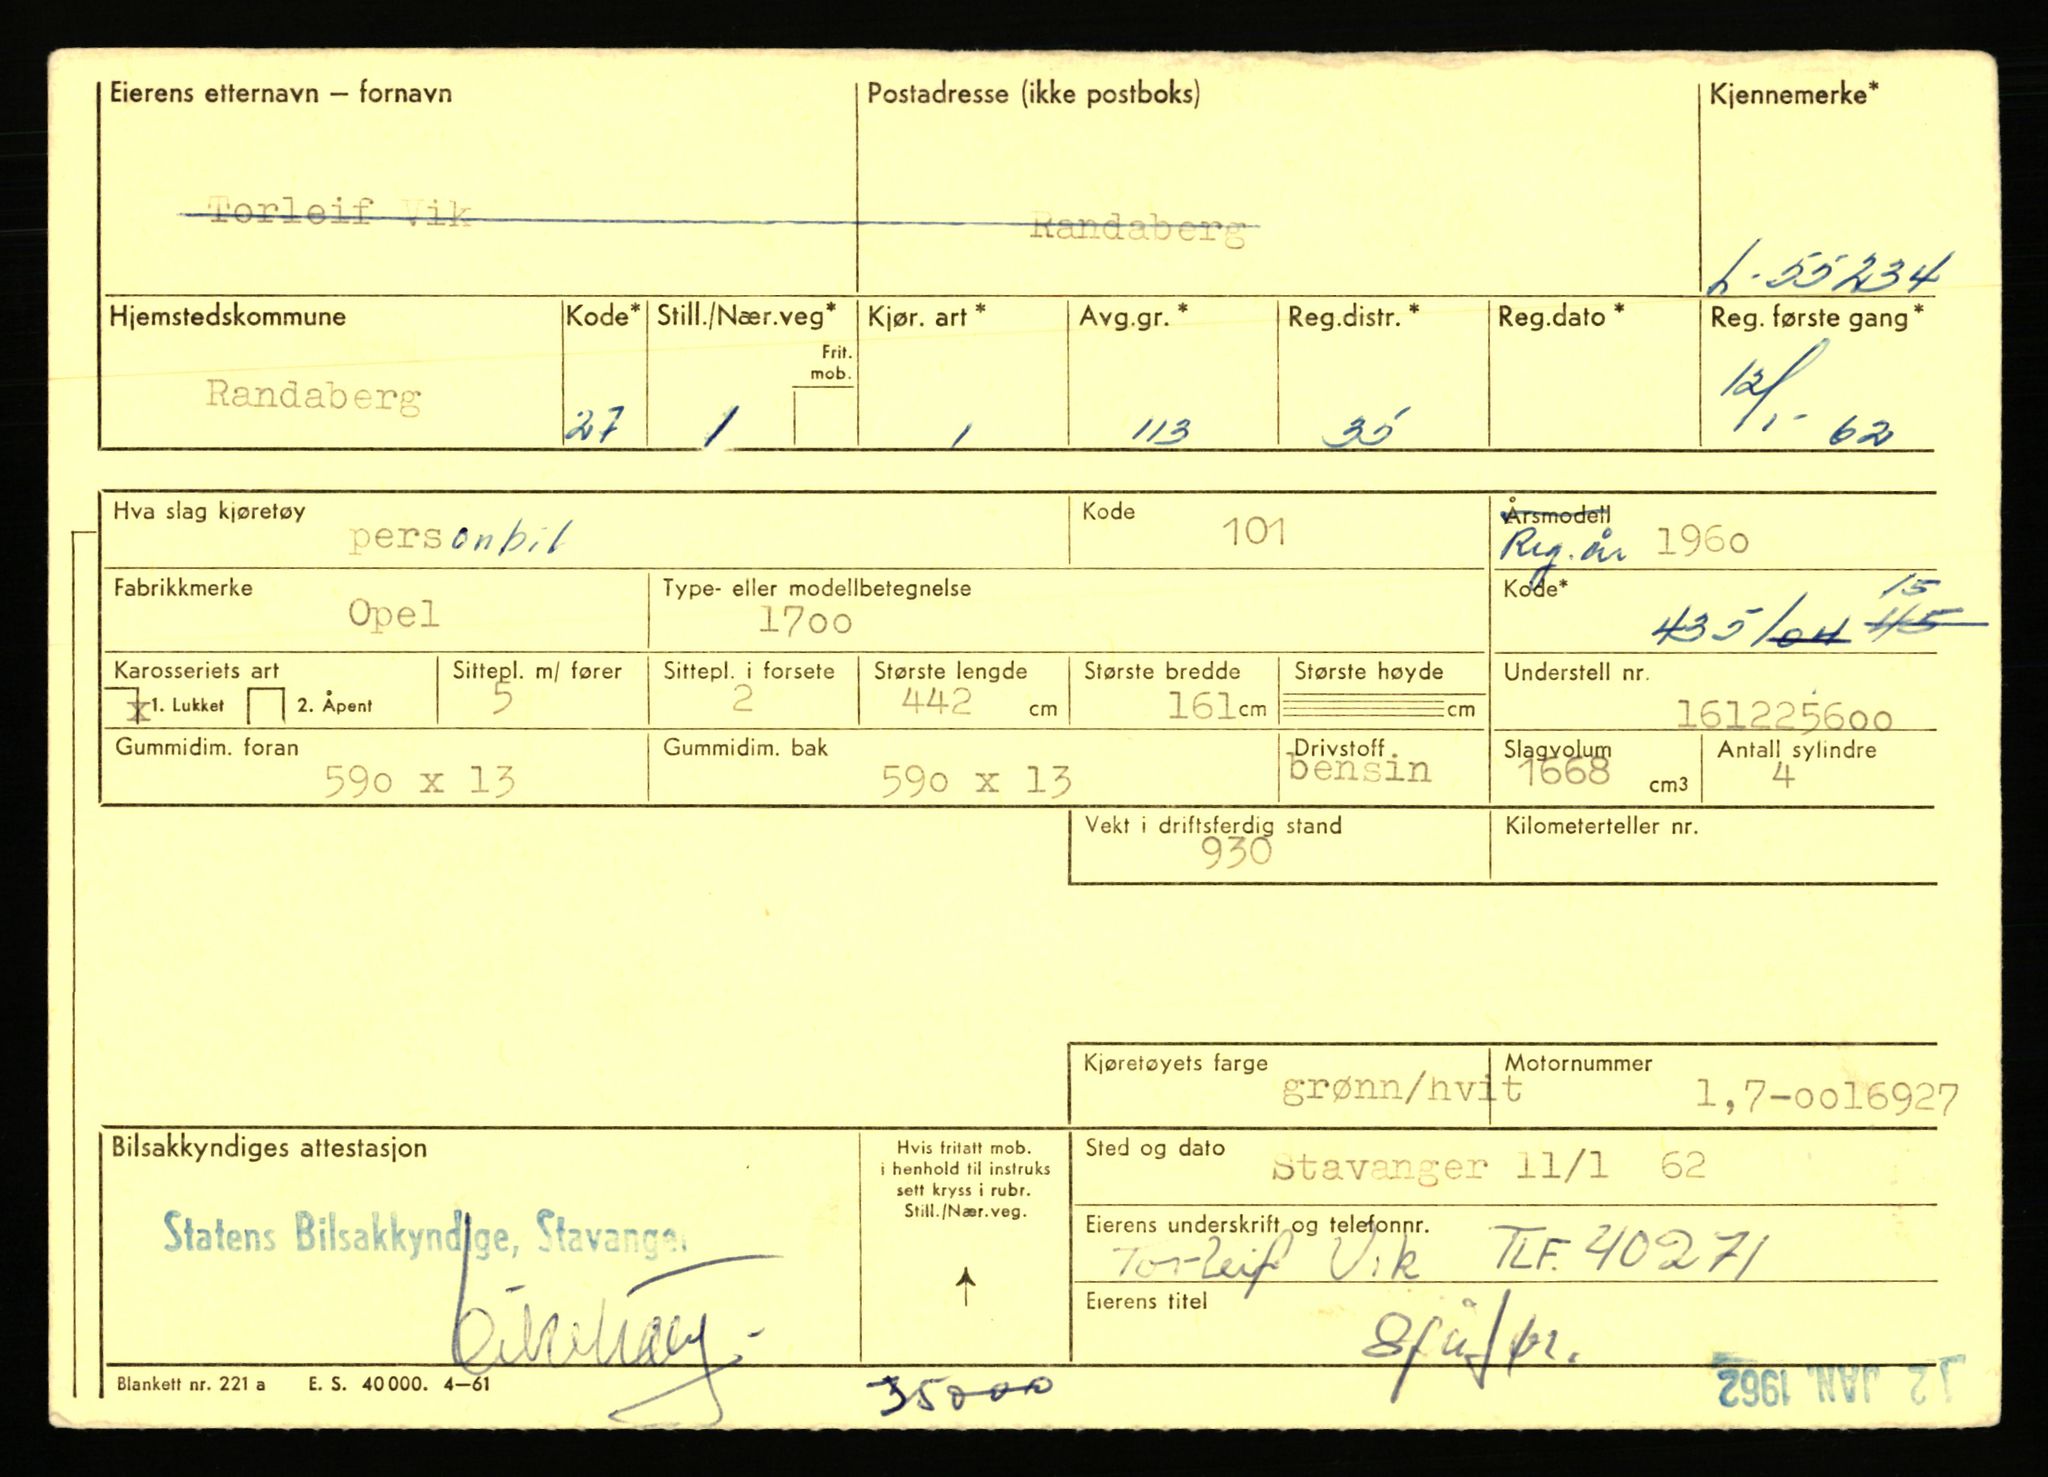 Eierens etternavn — fornavn
Postadresse (ikke postboks)
Kjennemerke*
Torleif Vik
Randaberg
L-55234
Hjemstedskommune
Kode*
Still./Nær.veg*
Frit. mob.
Kjør. art*
Avg.gr.*
Reg.distr.*
Reg.dato*
Reg. første gang*
Randaberg
27
1
1
113
35
12/1-62
Hva slag kjøretøy
personbil
Kode
101
Årsmodell
Reg. år 1960
Fabrikkmerke
Opel
Type- eller modellbetegnelse
1700
Kode*
15
435/04 45
Karosseriets art
x 1. Lukket 2. Åpent
Sittepl. m/ fører
5
Sittepl. i forsete
2
Største lengde
442 cm
Største bredde
161 cm
Største høyde
cm
Understell nr.
161225600
Gummidim. foran
590 x 13
Gummidim. bak
590 x 13
Drivstoff
bensin
Slagvolum
1668 cm3
Antall sylindre
4
Vekt i driftsferdig stand
930
Kilometerteller nr.
Kjøretøyets farge
grønn/hvit
Motornummer
1,7-0016927
Bilsakkyndiges attestasjon
Statens Bilsakkyndige, Stavanger
Hvis fritatt mob.
i henhold til instruks
sett kryss i rubr.
Still./Nær.veg.
Sted og dato
Stavanger 11/1 62
Eierens underskrift og telefonnr.
Torleif Vik TLF. 40271
Eierens titel
Blankett nr. 221 a E. S. 40 000. 4—61
35000
12 JAN. 1962